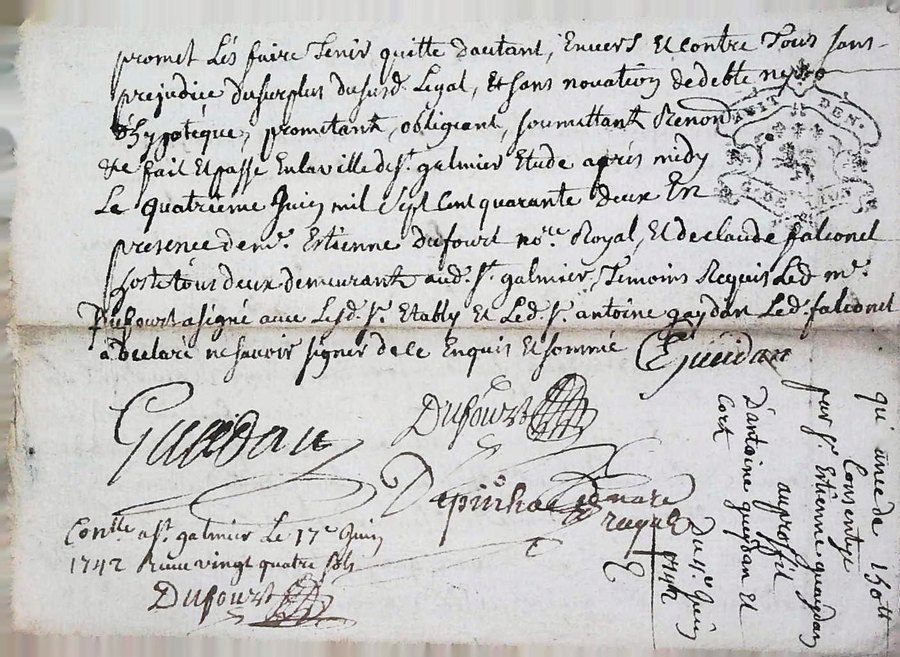 promet Les faire Tenir quitte dautant, Envers Et contre Tous sans
prejudice dusurplus dususd. Legal, Et sans novation dedebte ny
d'hypoteque, promettant, obligeant, soumettant Renond
fait Et passe Enlaville de st. galmier Etude apres midy
Le quatrieme Juin mil sept cent quarante deux En
presence de me. Estienne dufourt nore. Royal, Et declaude falconet
hoste tous deux demeurant aud. st. galmier, Temoins Requis Led. me.
Dufourt a signé avec Lesd. sr. Etably Et Led. sr. antoine gaydan Led. falconet
a declaré ne savoir signer de ce Enquis Et sommé
Gueidan
Gueidan
Dufourt
Depinhac notaire
royal
Conlle a st. galmier Le 17e Juin
1742 Reçu vingt quatre sols
Dufourt
du 4e Juin
1742
quitance de 150tt
Consentye
par sr. Estienne gueydan
auproffit
D'antoine gueydan Et